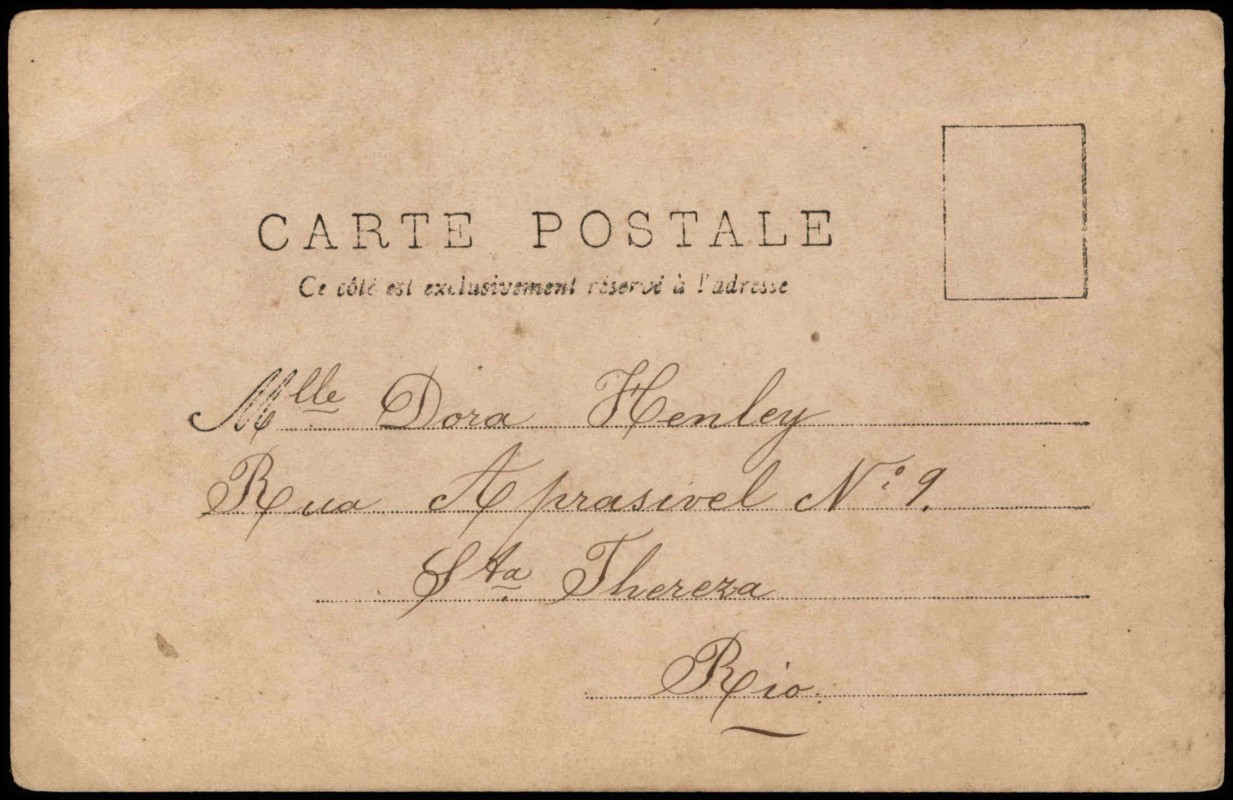 CARTE POSTALE
Ce côté est exclusivement réservé à l'adresse
Mlle Dora Henley
Rua Aprasivel Nº 9.
Sta Thereza
Rio.